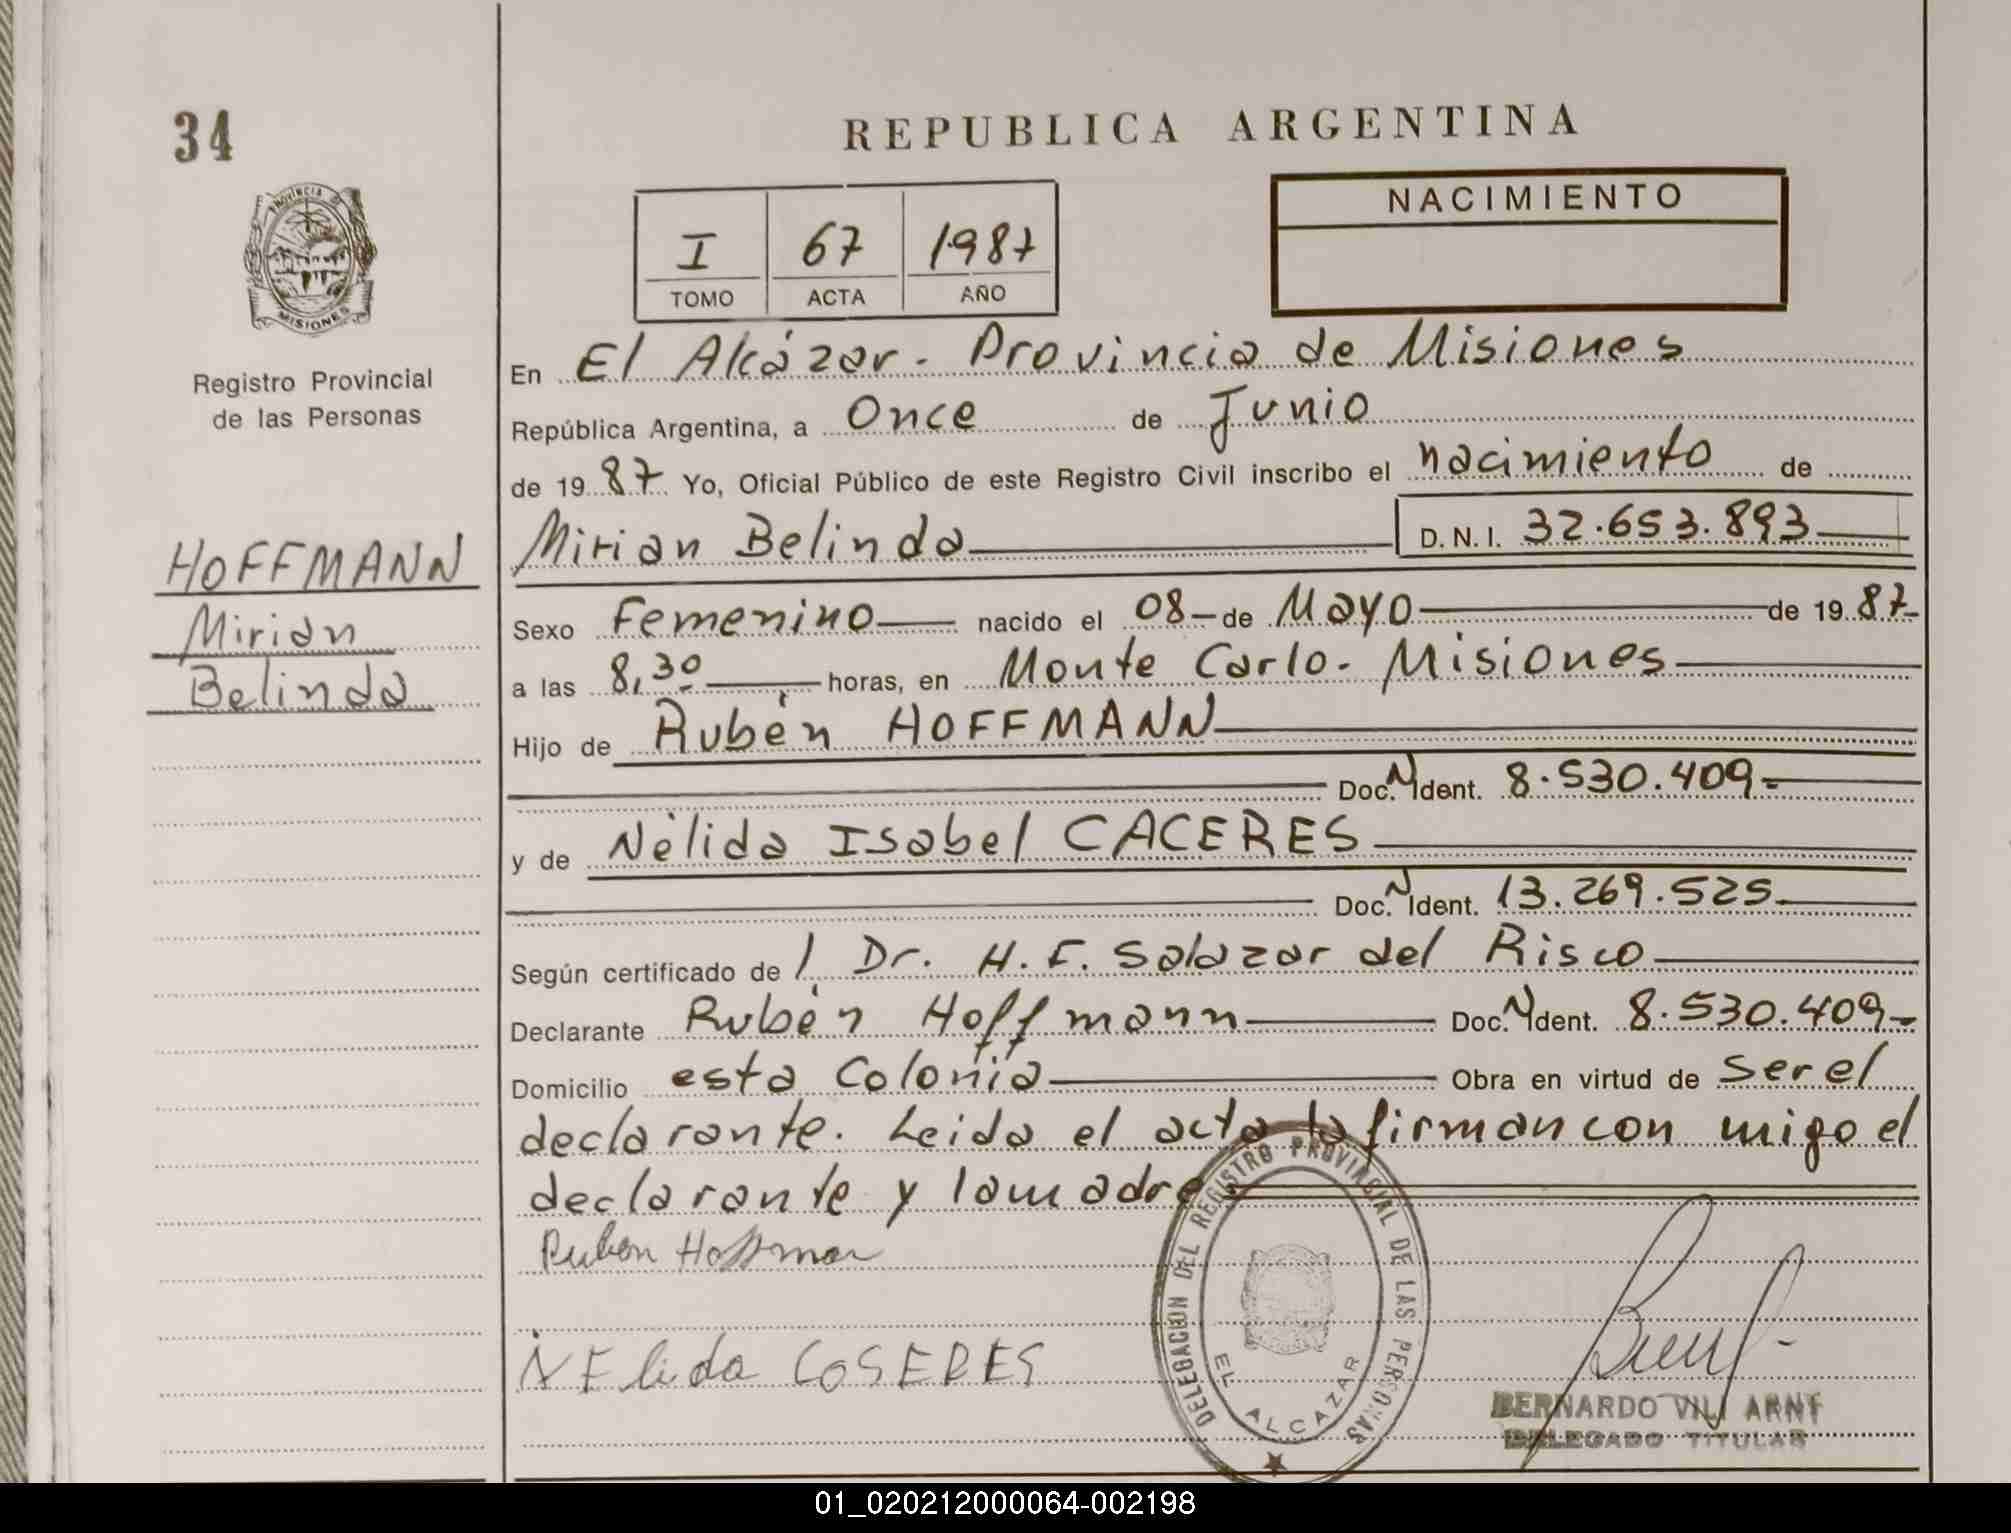 34
REPUBLICA ARGENTINA
PROVINCIA DE
MISIONES
Registro Provincial
de las Personas
I 67 1987
TOMO ACTA AÑO
NACIMIENTO
En El Alcázar - Provincia de Misiones
República Argentina, a Once de Junio
de 1987 Yo, Oficial Público de este Registro Civil inscribo el nacimiento de
Mirian Belinda D.N.I. 32.653.893
HOFFMANN
Mirian
Belinda
Sexo Femenino nacido el 08 - de Mayo de 1987-
a las 8,30 horas, en Monte Carlo - Misiones
Hijo de Rubén HOFFMANN
Doc. N Ident. 8.530.409-
y de Nélida Isabel CACERES
Doc. N Ident. 13.269.525
Según certificado de l Dr. H. F. Salazar del Risco
Declarante Rubén Hoffmann Doc. N Ident. 8.530.409-
Domicilio esta Colonia Obra en virtud de ser el
declarante. Leida el acta la firman con migo el
declarante y la madre
Ruben Hoffman
NElida COSERES
DELEGACION DEL REGISTRO PROVINCIAL DE LAS PERSONAS
EL ALCAZAR
BERNARDO VILI ARNT
DELEGADO TITULAR
01_020212000064-002198